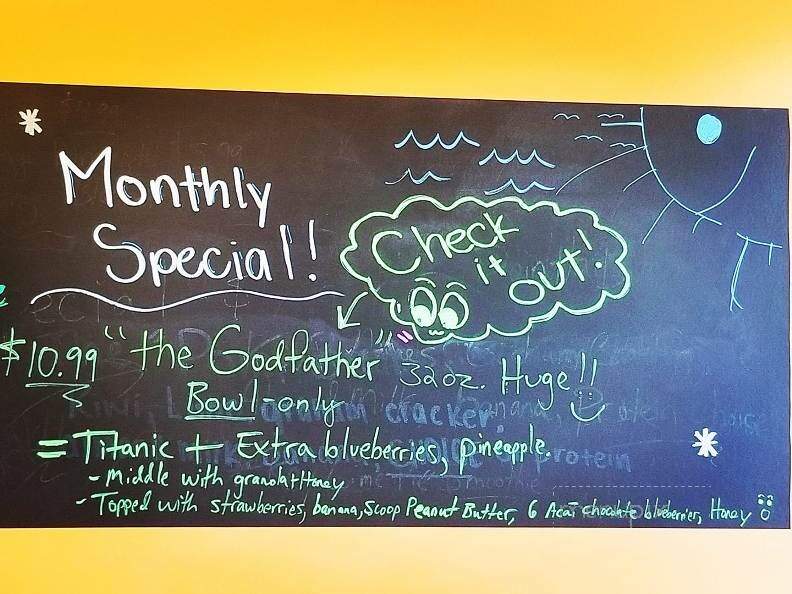 Monthly
Special!
Check
it
out!
$10.99 "the Godfather" 32oz. Huge!!
Bowl-only
graham cracker,
= Titanic + Extra blueberries, pineapple.
protein
- Middle with granola + Honey
- Topped with strawberries, banana, Scoop Peanut Butter, 6 Acaí chocolate blueberries, Honey